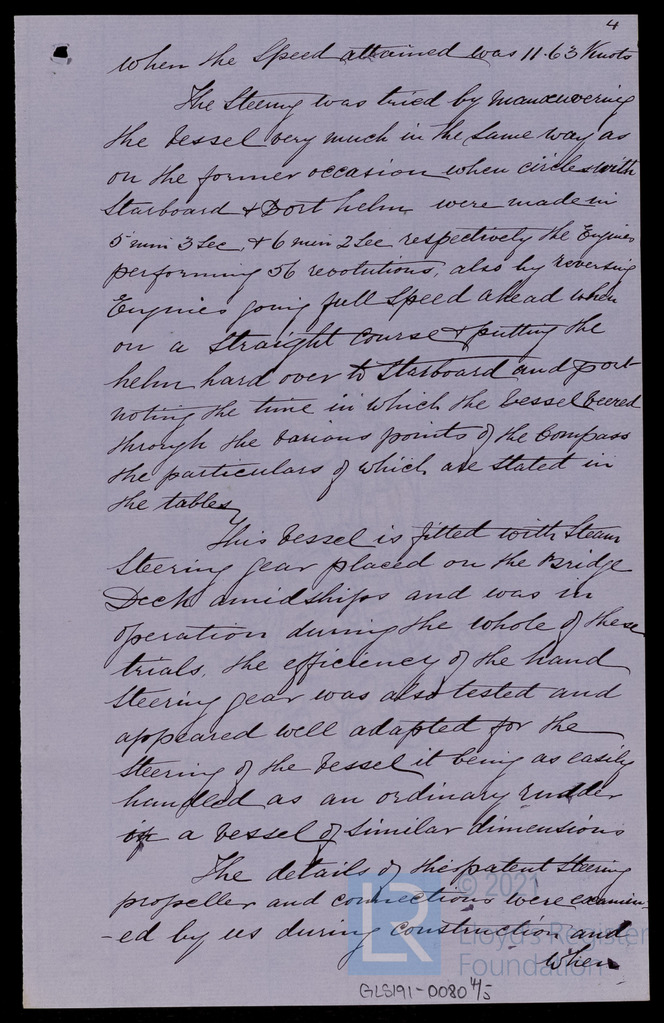 4
when the Speed attained was 11.63 Knots
The Steering was tried by manœuvering
the vessel very much in the same way as
on the former occasion when circles with
Starboard & Port helm were made in
5 min 3 Sec, & 6 min 2 Sec respectively the Engines
performing 56 revolutions, also by reversing
Engines going full speed ahead when
on a Straight course & putting the
helm hard over to Starboard and port
noting the time in which the vessel veered
through the various points of the Compass
the particulars of which are stated in
the tables
This vessel is fitted with Steam
Steering gear placed on the Bridge
Deck amidships and was in
operation during the whole of these
trials, the efficiency of the hand
Steering gear was also tested and
appeared well adapted for the
steering of the vessel it being as easily
handled as an ordinary rudder
a vessel of similar dimensions
The details of the patent Steering
propeller and connections were examin-
-ed by us during construction and
when
LR
© 2021
Lloyd's Register
Foundation
GLS191-0080 4/5